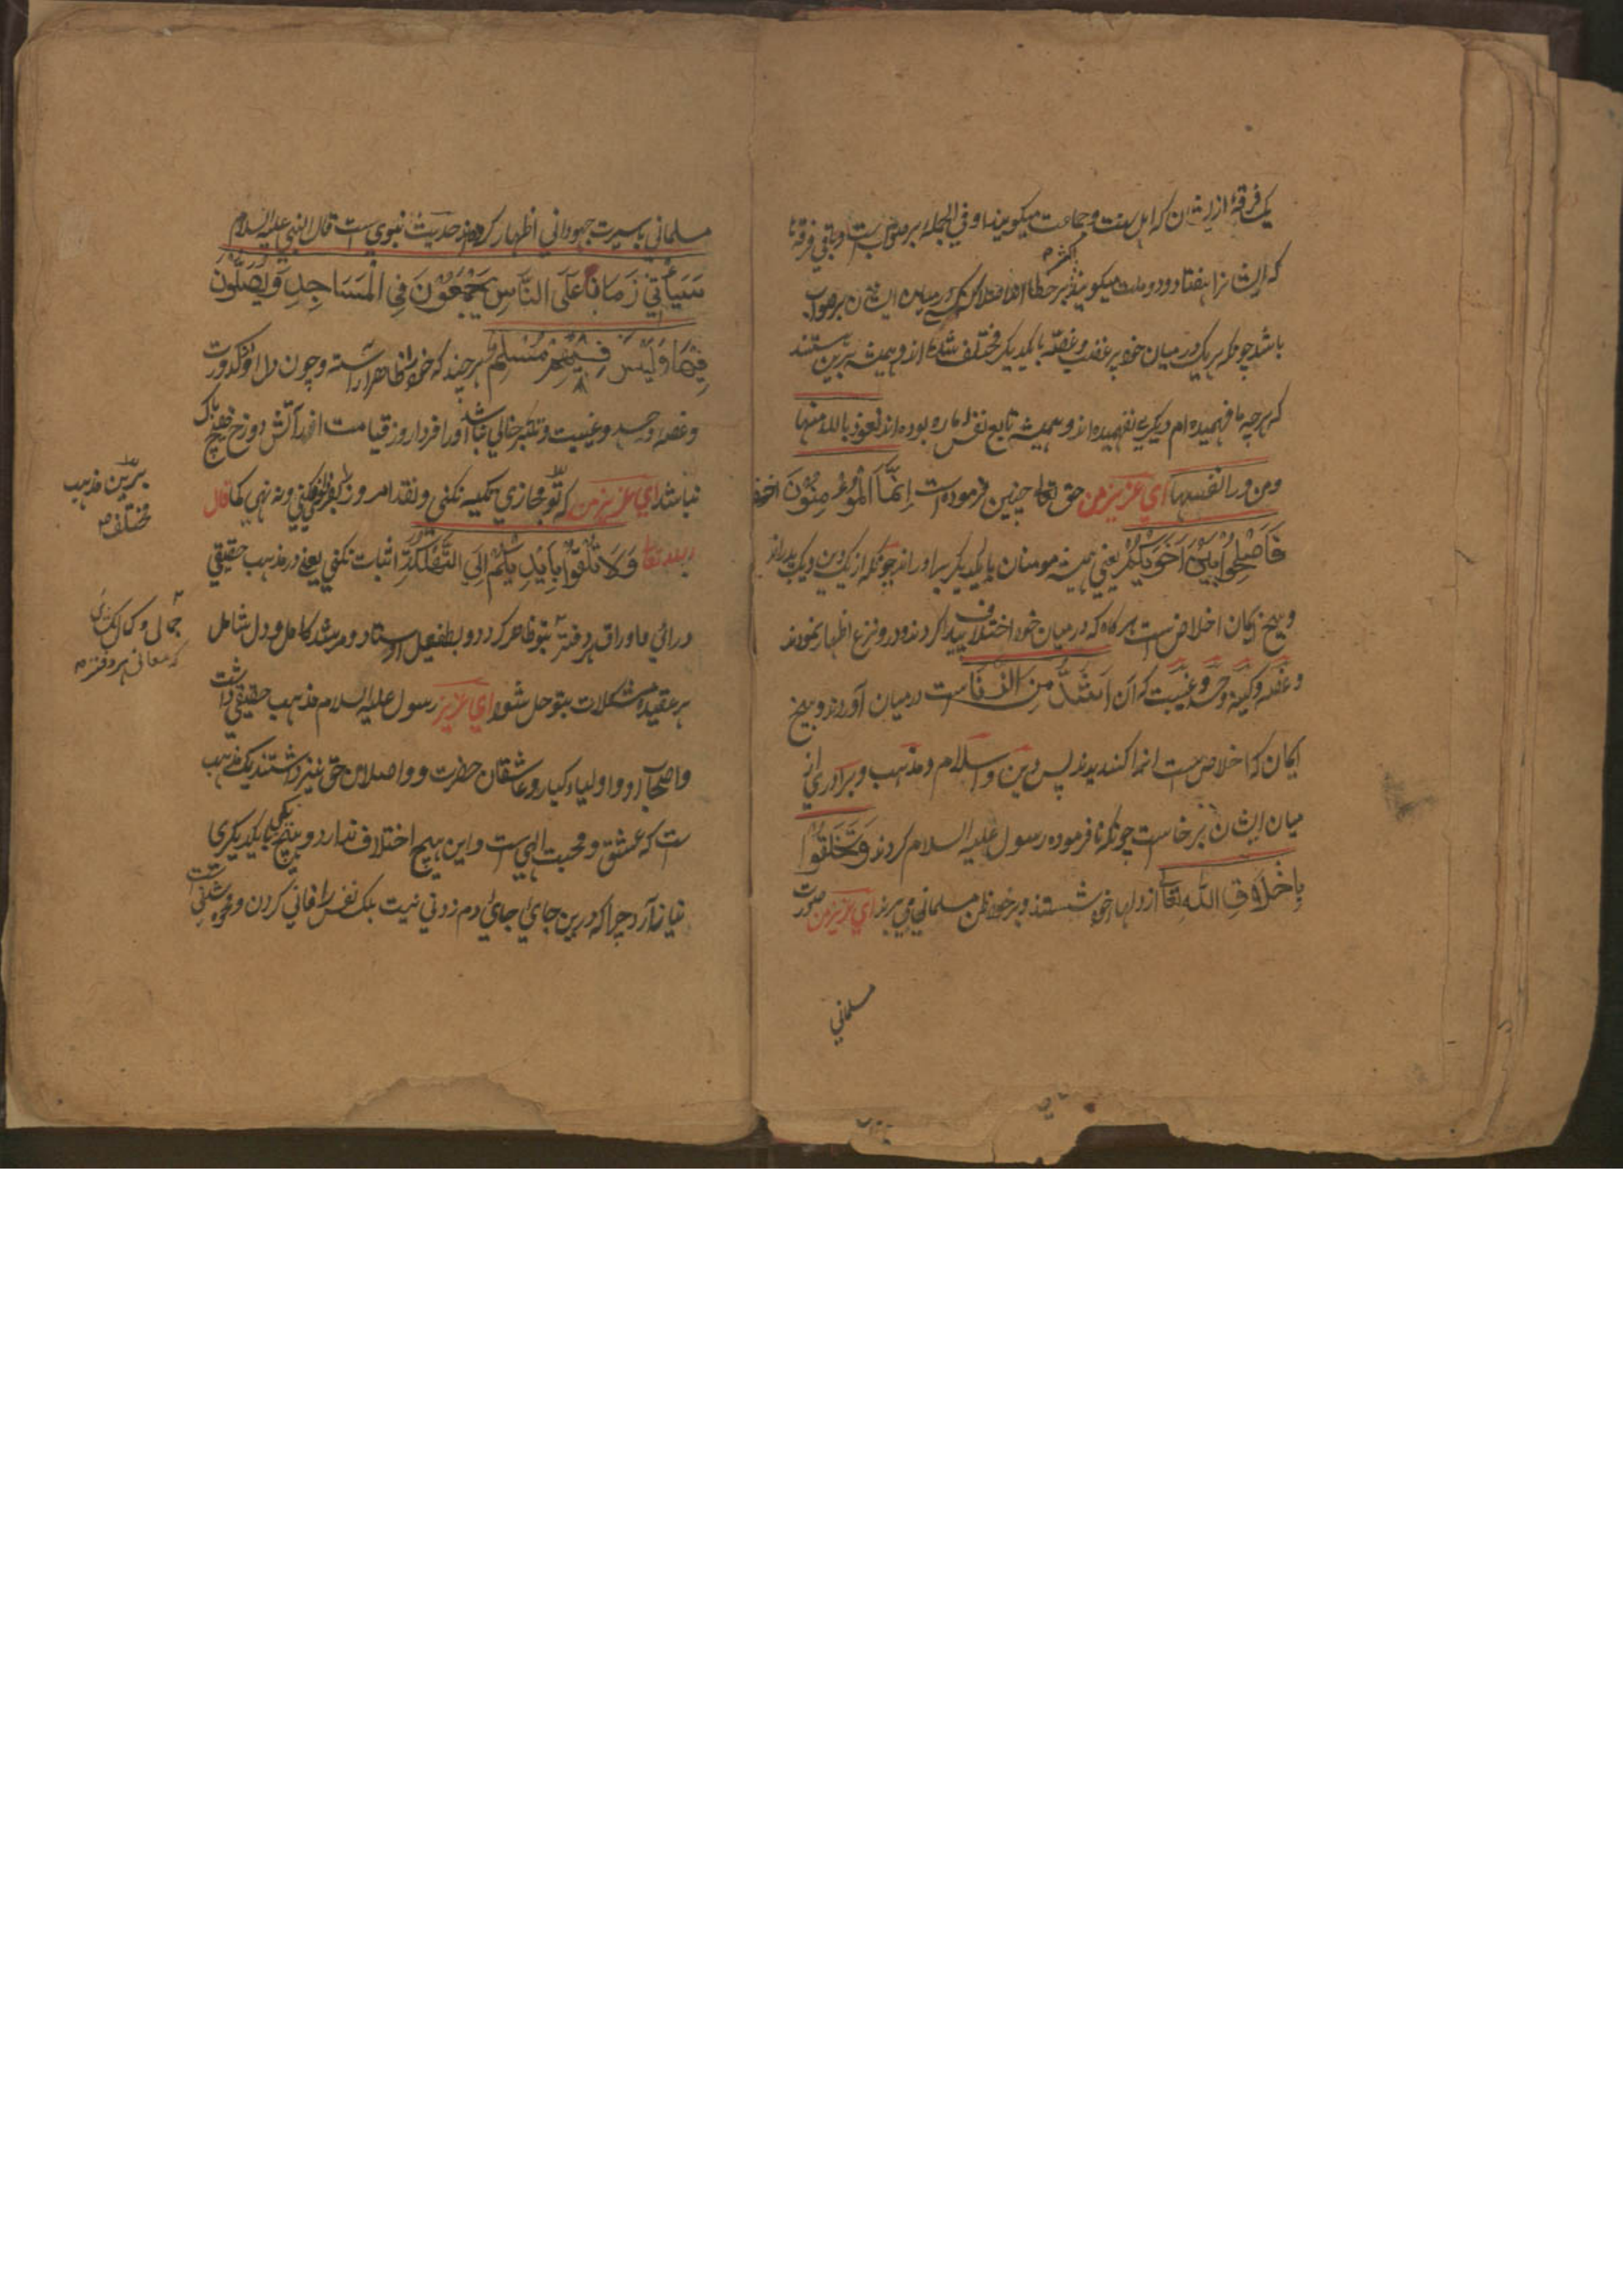 یک فرقهٔ از ایشان که اهل سنت و جماعت میگویند او فی الجمله بر صواب است و باقی فرقها
که ایشانرا هفتاد و دو ملت میگویند بر خطا اند میان ایشان بر صواب
باشد چونکه هر یک در میان خود پر غضب و غصّه با یکدیگر مختلف شده اند و همیشه برین هستند
که هر چه ما فهمیده ام دیگری نفهمیده اند و همیشه تابع نفس اماره بوده اند نعوذ بالله منها
ومن ورا نفسها ای عزیز من حق تعالی چنین فرموده است اِنَّمَا الْمُؤْمِنُونَ اخوة
فَاَصْلِحُوا بَیْنَ اَخَوَیْکُمْ یعنی همیشه مومنان با یکدیگر برادر اند چونکه از یک دین و یک پدر اند
و بیخ ایمان اخلاص است هر گاه که در میان خود اختلاف پیدا کردند و در و نزع اظهار نمودند
و غصّه و کینه و حسد و غیبت که آن اَشَدُّ مِنَ الزِّنَا است در میان آوردند و بیخ
ایمان که اخلاص است انرا کندیدند پس دین و اسلام و مذهب و برادری از
میان ایشان برخاست چونکه نافرموده رسول علیه السلام کردند وَتَخَلَّقُوا
بِاَخْلَاقِ اللّٰهِ تعالی از دلها خود شستند و بر خود ظن مسلمانی می برند ای عزیز من صورت
مسلمانی
مسلمانی با سیرت جهودانی اظهار کرده اند حدیث نبوی است قال النبی علیه السلام
سَیَأْتِی زَمَانًا عَلَی النَّاسِ یَجْمَعُوْنَ فِی الْمَسَاجِدِ وَیُصَلُّوْنَ
فِیْهَا وَلَیْسَ فِیْهِمْ مُسْلِمٌ هر چند که خود را ظاهر اراسته و چون دل او کدورت
و غصه و حسد و غیبت و تکبر خالی نباشد او را فردا روز قیامت از آتش دوزخ هیچ باک
نباشد ای عزیز من که تو مجازی تکیه نکنی و نقد امروز بفردا نفکنی ونه نهی کما قال
الله تعالی وَلَا تُلْقُوْا بِاَیْدِیْکُمْ اِلَی التَّهْلُکَةِ اثبات نکنی یعنی در مذهب حقیقی
درائی و اوراق هر دفتر بتو ظاهر گردد و بطفیل استاد و مرشد کامل و دل شامل
هر عقیده مشکلات بتو حل شود ای عزیز رسول علیه السلام مذهب حقیقی داشت
و اصحاب او و اولیاء کبار و عاشقان حضرت و واصلان حق نیز داشتند یک مذهب
است که عشق و محبت الهی است و این هیچ اختلاف ندارد و هیچ یکی با یکدیگری
نیازارد چرا که درین جای جای دم زدنی نیست بلک نفس را فانی کردن و خود شکنی است
برین مذهب
مختلف
جمالی و کمال
که معانی هر دفتر